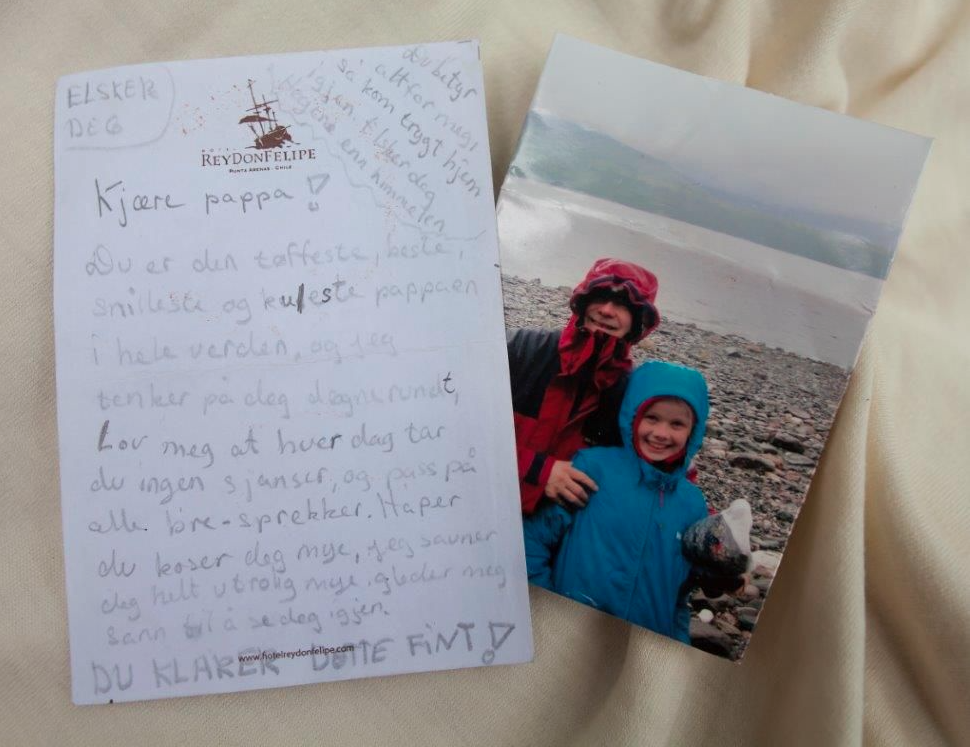 ELSKER
DEG
HOTEL
REYDONFELIPE
PUNTA ARENAS - CHILE
Du betyr
altfor meg,
så kom trygt hjem
igjen, Elsker deg
lengere enn himmelen
Kjære pappa!
Du er den tøffeste, beste,
snilleste og kuleste pappaen
i hele verden, og jeg
tenker på deg døgnerundt,
Lov meg at hver dag tar
du ingen sjanser, og pass på
alle bre-sprekker. Håper
du koser deg mye, jeg savner
deg helt utrolig mye, gleder meg
sånn til å se deg igjen.
www.hotelreydonfelipe.com
DU KLARER DETTE FINT!